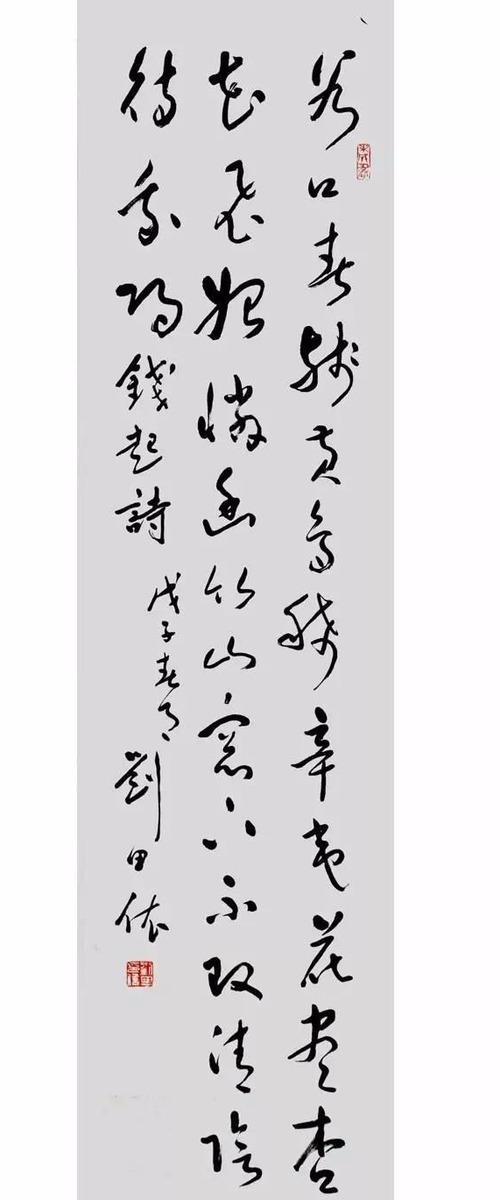 谷口春殘黃鳥稀辛夷花盡杏
花飛始憐幽竹山窓下不改清陰
待我歸錢起詩
戊子春月劉田依